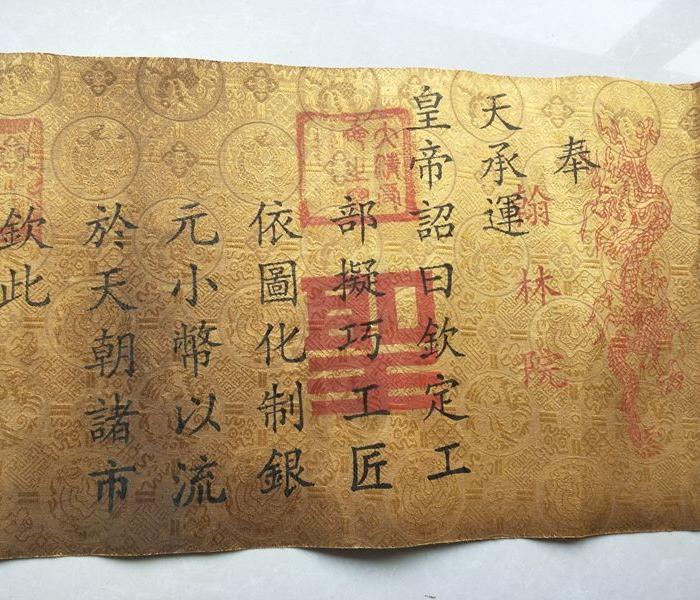 奉
天承運
皇帝詔曰欽定工
部擬巧工匠
依圖化制銀
元小幣以流
於天朝諸市
欽此
翰林院